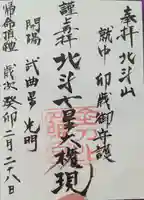 奉拝 北斗山
就中 卯歳御守護
謹上再拝 北斗七星大権現
開陽 武曲星 光明
帰命頂禮 歳次癸卯 二月二十八日